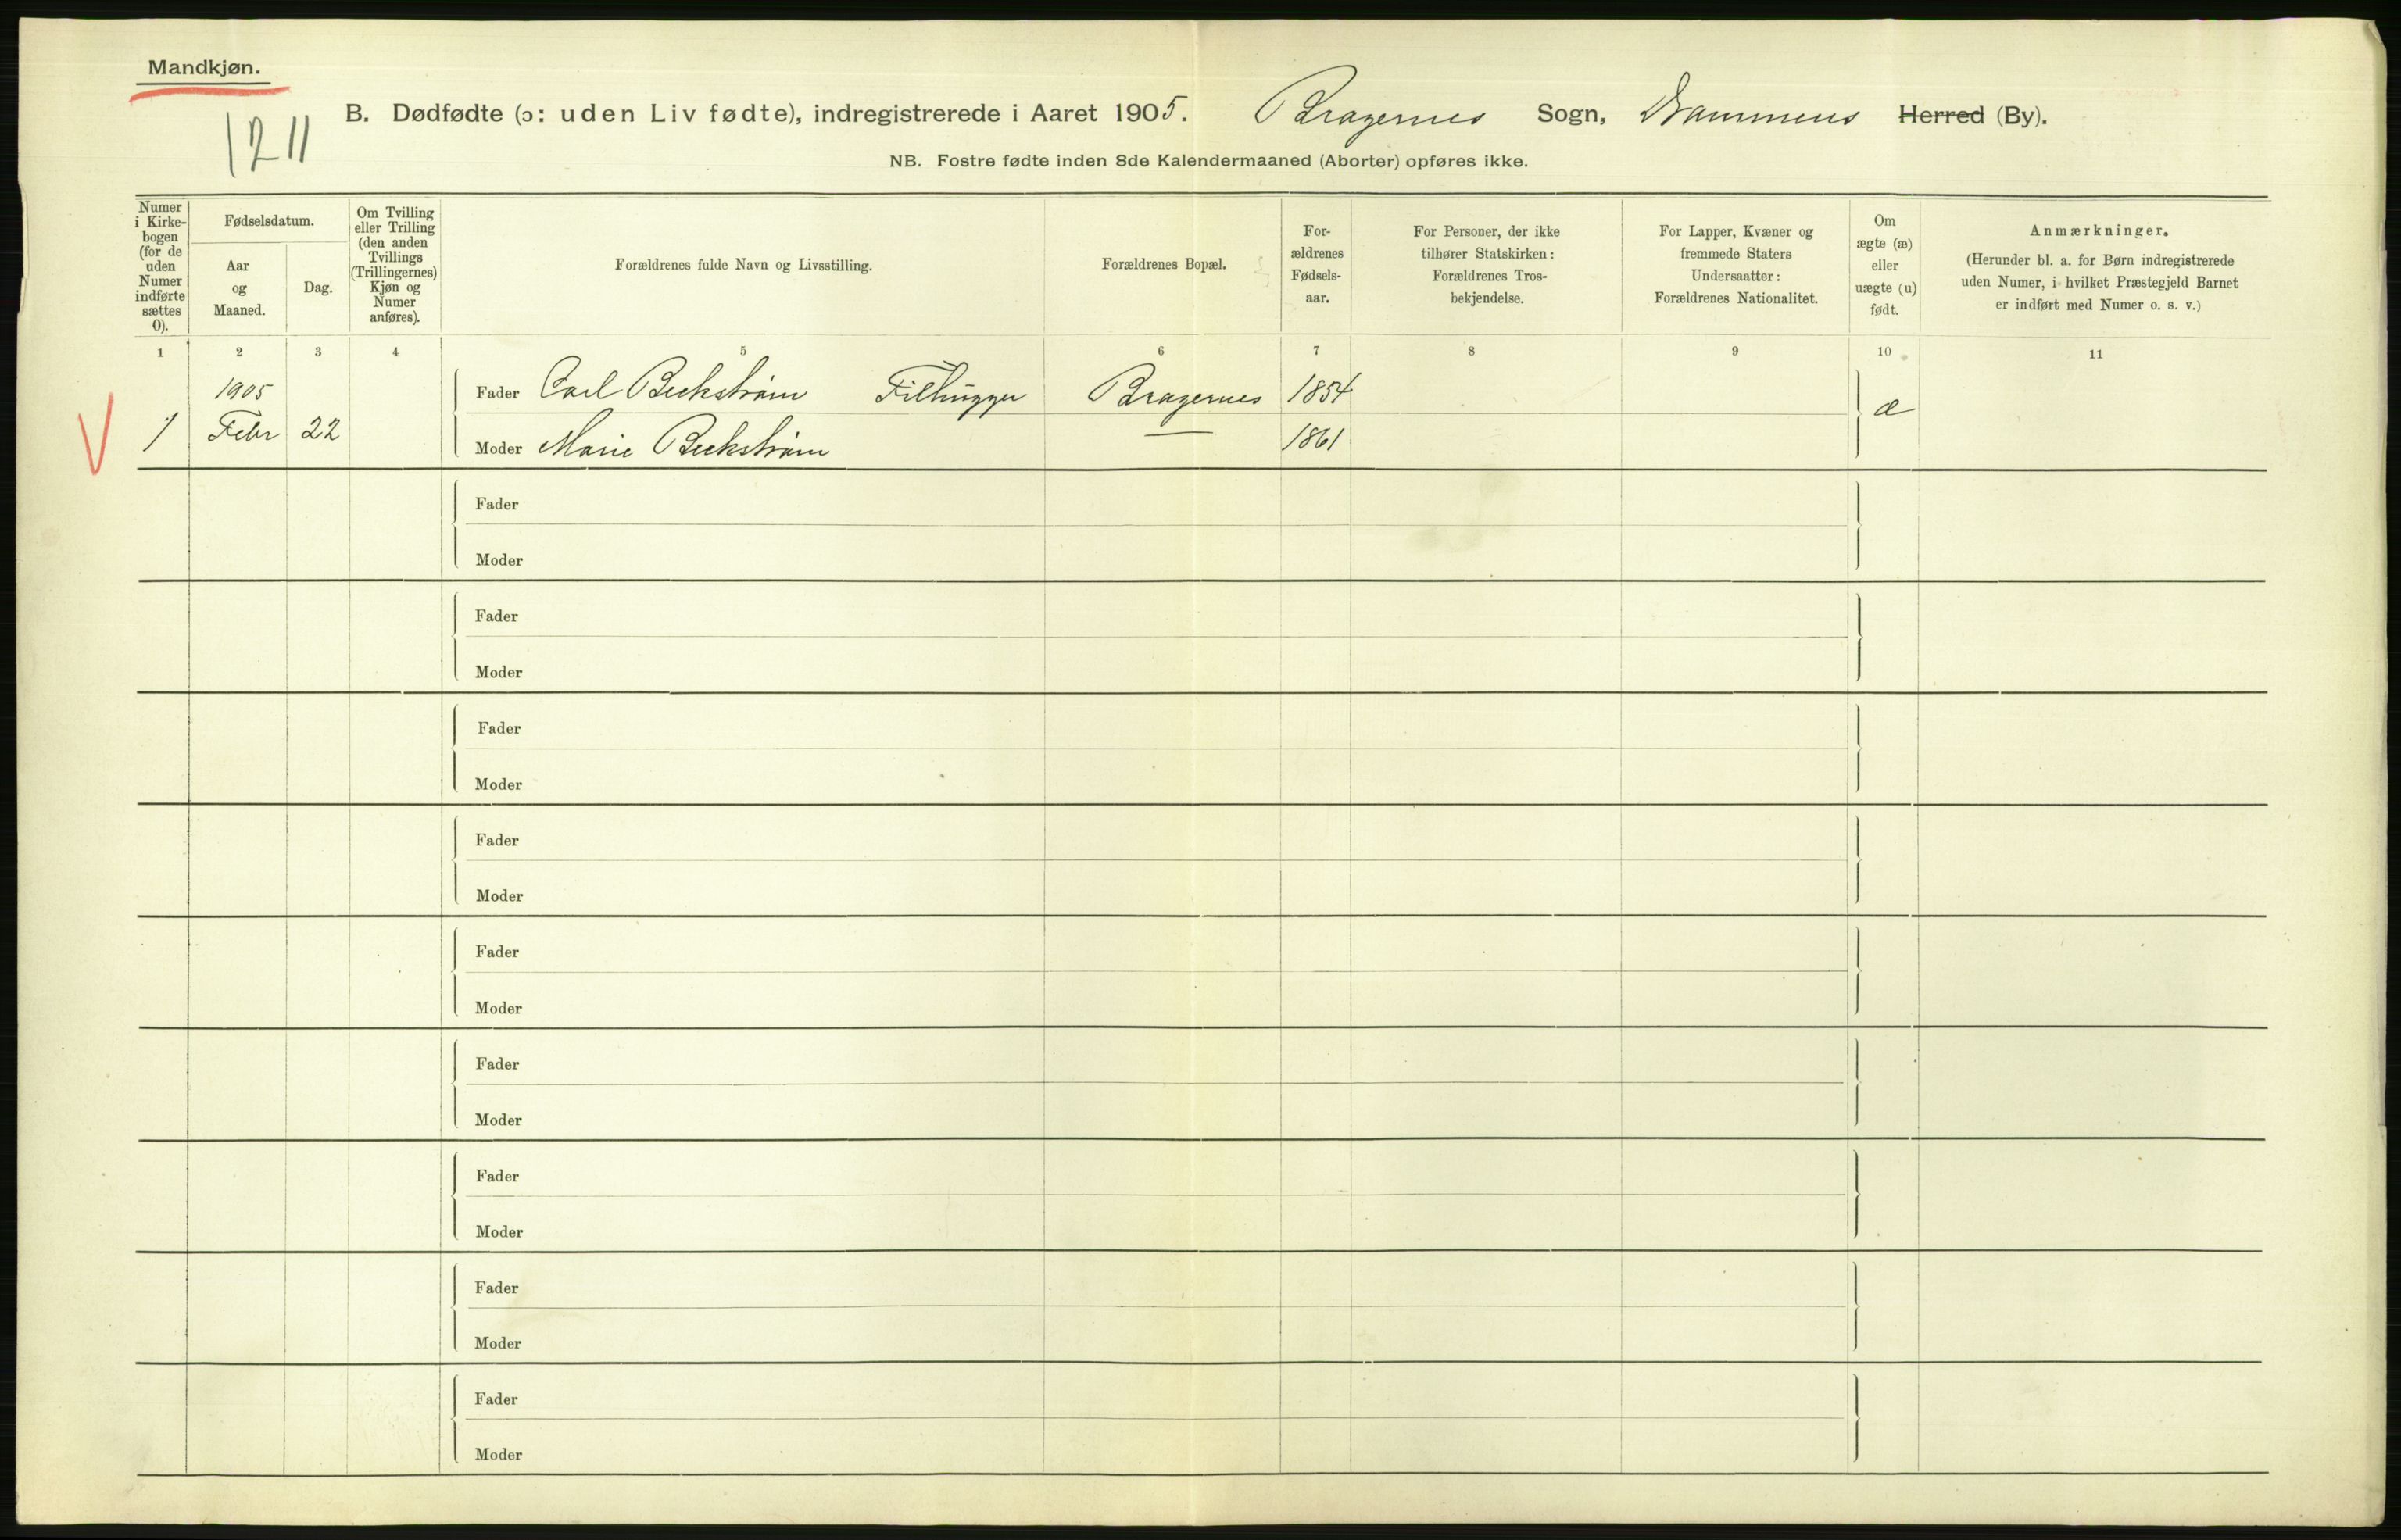 Mandkjøn.
1211
B. Dødfødte (ɔ: uden Liv fødte), indregistrerede i Aaret 1905. Bragernes Sogn, Drammens Herred (By).
NB. Fostre fødte inden 8de Kalendermaaned (Aborter) opføres ikke.
Numer
i Kirke-
bogen
(for de
uden
Numer
indførte
sættes
0).
Fødselsdatum.
Aar
og
Maaned.
Dag.
Om Tvilling
eller Trilling
(den anden
Tvillings
(Trillingernes)
Kjøn og
Numer
anføres).
Forældrenes fulde Navn og Livsstilling.
Forældrenes Bopæl.
For-
ældrenes
Fødsels-
aar.
For Personer, der ikke
tilhører Statskirken:
Forældrenes Tros-
bekjendelse.
For Lapper, Kvæner og
fremmede Staters
Undersaatter:
Forældrenes Nationalitet.
Om
ægte (æ)
eller
uægte (u)
født.
Anmærkninger.
(Herunder bl. a. for Børn indregistrerede
uden Numer, i hvilket Præstegjeld Barnet
er indført med Numer o. s. v.)
1 2 3 4 5 6 7 8 9 10 11
1905
Fader Carl Beckstrøm Filhugger Bragernes 1854
V 1 Febr 22 æ
Moder Marie Beckstrøm — 1861
Fader
Moder
Fader
Moder
Fader
Moder
Fader
Moder
Fader
Moder
Fader
Moder
Fader
Moder
Fader
Moder
Fader
Moder